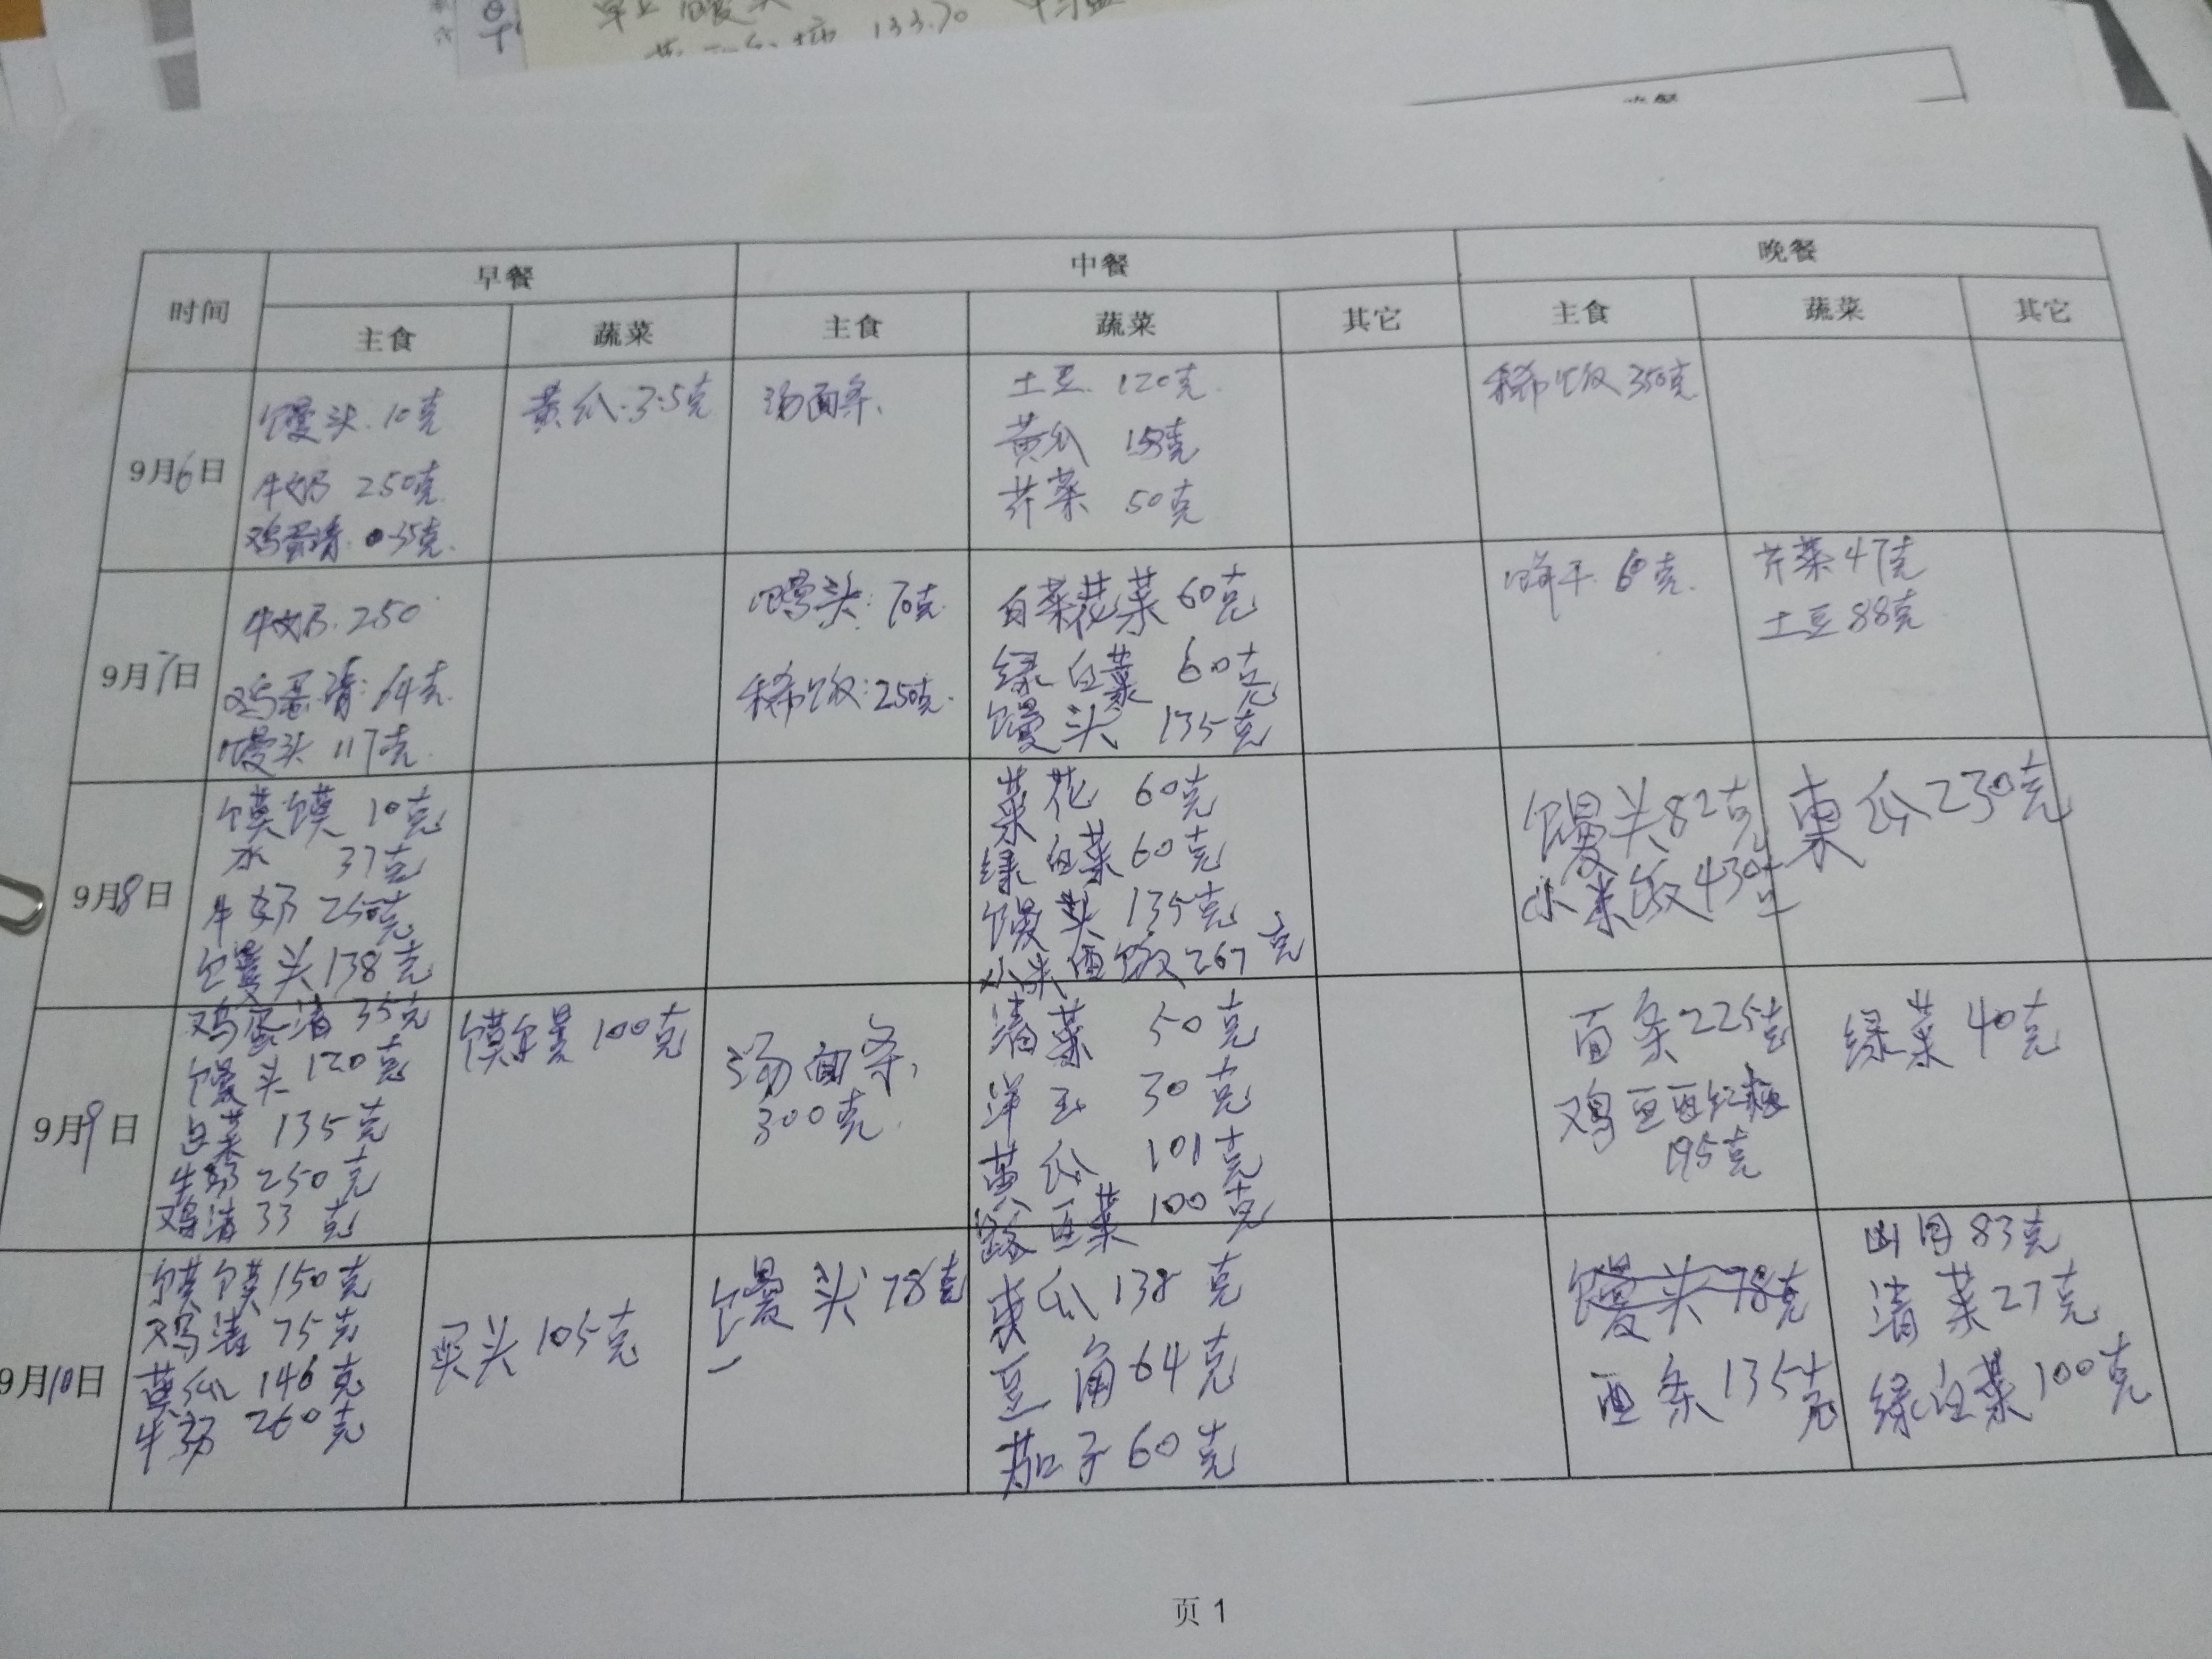 133.70
时间
早餐
中餐
晚餐
主食
蔬菜
主食
蔬菜
其它
主食
蔬菜
其它
9月6日
馒头 10克
牛奶 250克
鸡蛋清 35克
黄瓜 35克
汤面条
土豆 120克
黄瓜 克
芹菜 50克
稀饭 350克
9月7日
牛奶 250
鸡蛋清: 64克
馒头 117克
馒头: 70克
稀饭: 250克
白菜花菜 60克
绿白菜 60克
馒头 135克
6克
芹菜 47克
土豆 88克
9月8日
馍馍 10克
水 37克
牛奶 250克
馒头 138克
菜花 60克
绿白菜 60克
馒头 135克
小米 饭 267克
馒头 82克
小米饭 430克
东瓜 230克
9月9日
鸡蛋清 35克
馒头 120克
白菜 135克
牛奶 250克
鸡清 33克
100克
汤面条
300克
清菜 50克
洋 30克
黄瓜 101克
豆菜 100克
面条 225克
鸡豆
195克
绿菜 40克
9月10日
馍馍 150克
鸡清 75克
黄瓜 146克
牛奶 260克
头 105克
馒头 78克
东瓜 138克
豆角 64克
茄子 60克
馒头 78克
面条 135克
83克
清菜 27克
绿白菜 100克
页 1